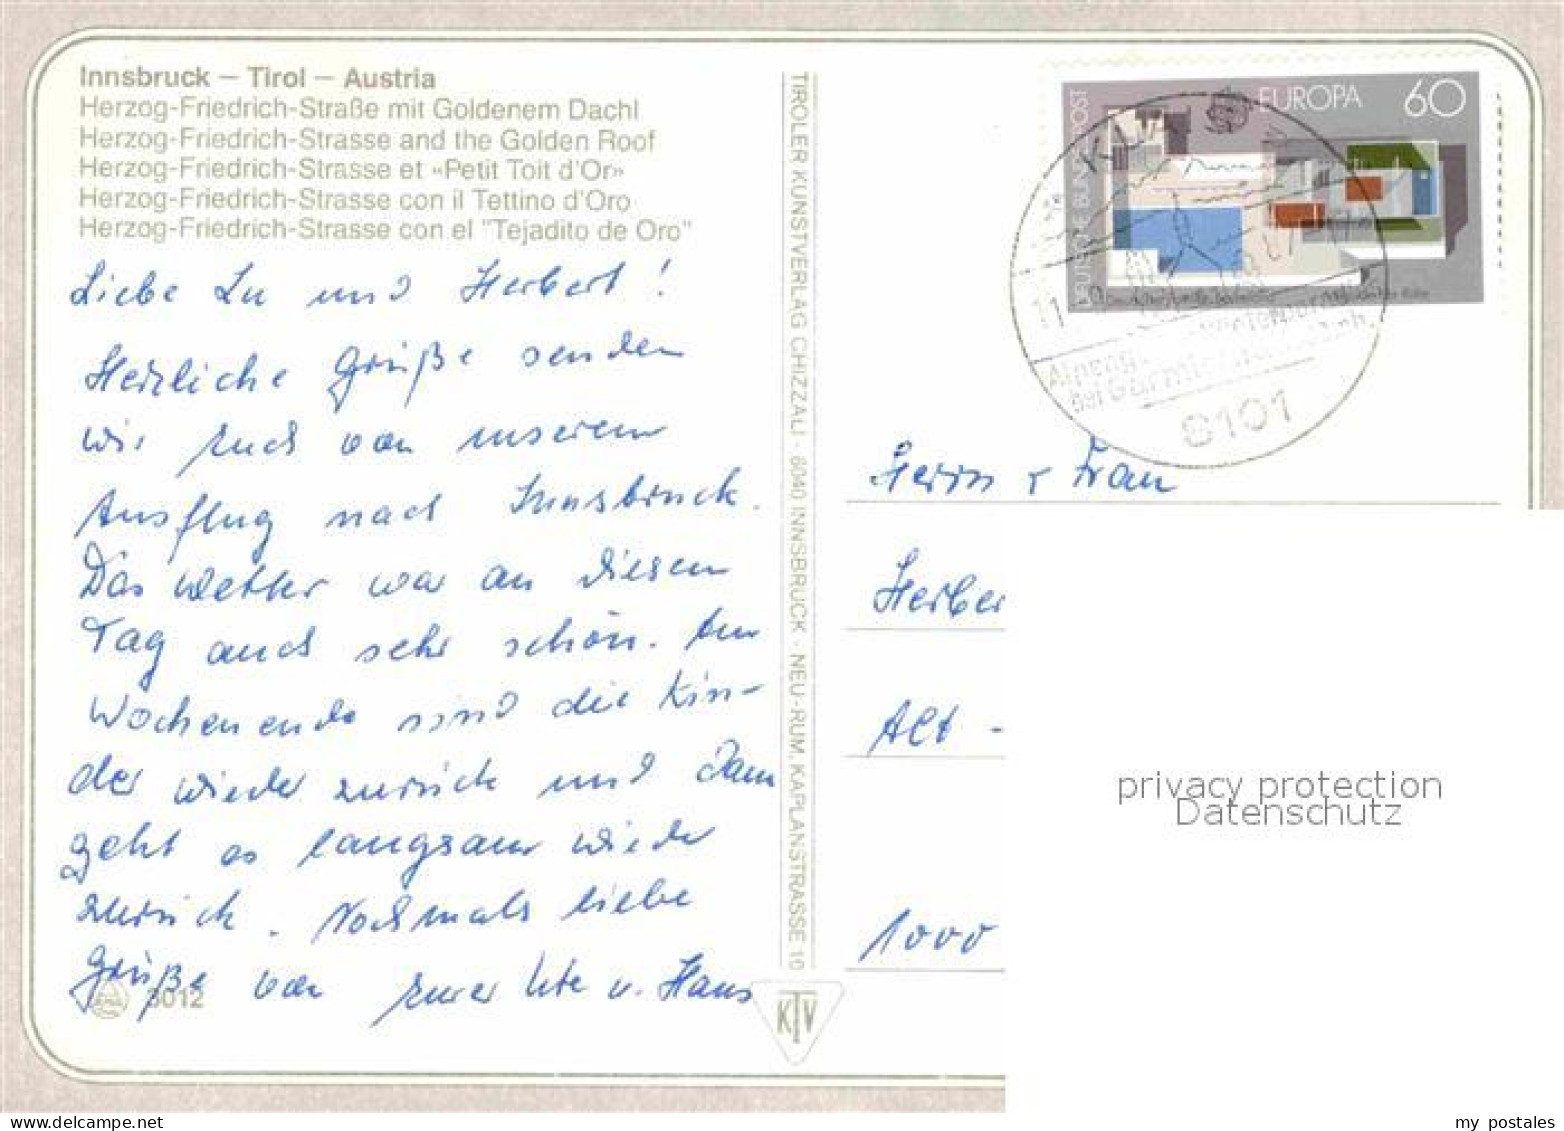 Innsbruck – Tirol – Austria
Herzog-Friedrich-Straße mit Goldenem Dachl
Herzog-Friedrich-Strasse and the Golden Roof
Herzog-Friedrich-Strasse et «Petit Toit d'Or»
Herzog-Friedrich-Strasse con il Tettino d'Oro
Herzog-Friedrich-Strasse con el "Tejadito de Oro"
Liebe Lu und Herbert!
Herzliche Grüße senden
wir Euch von unserem
Ausflug nach Innsbruck.
Das Wetter war an diesem
Tag auch sehr schön. Am
Wochenende sind die Kin-
der wieder zurück und dann
geht es langsam wieder
zurück. Nochmals liebe
Grüße von Eurer Ute u. Hans
3012
TIROLER KUNSTVERLAG CHIZZALI · 6040 INNSBRUCK · NEU-RUM, KAPLANSTRASSE 10
KTV
EUROPA 60
DEUTSCHE BUNDESPOST
8101
Herrn + Frau
Herber
Alt -
1000
privacy protection
Datenschutz
my postales